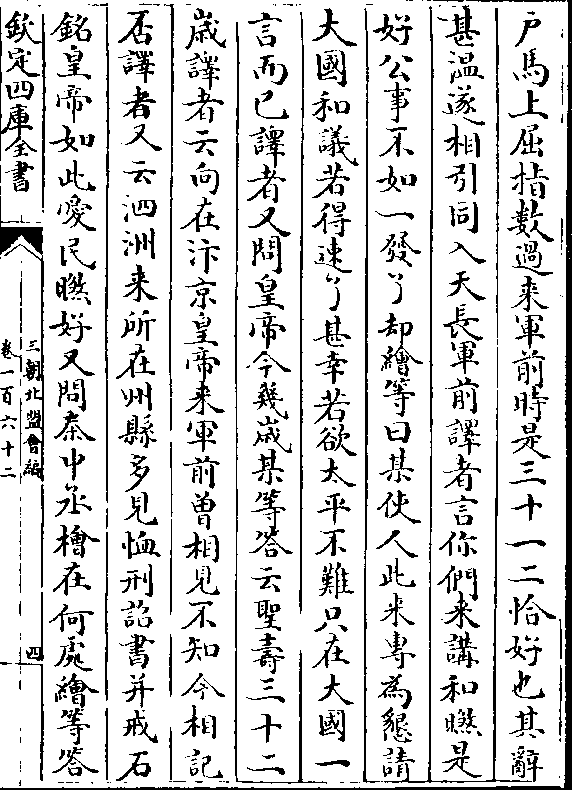 戸馬上屈指數過来軍前時是三十一二恰好也其辭
甚温遂相引同入天長軍前譯者言你們来講和瞧是
好公事不如一發了却繪等曰某使人此来専為懇請
大國和議若得速了甚幸若欲太平不難只在大國一
言而已譯者又問皇帝今幾嵗某等答云聖壽三十二
嵗譯者云向在汴京皇帝来軍前曽相見不知今相記
否譯者又云泗洲来所在州縣多見恤刑詔書并戒石
銘皇帝如此愛民瞧好又問秦中丞檜在何處繪等答
欽定四庫全書
三朝北盟會編
卷一百六十二
四